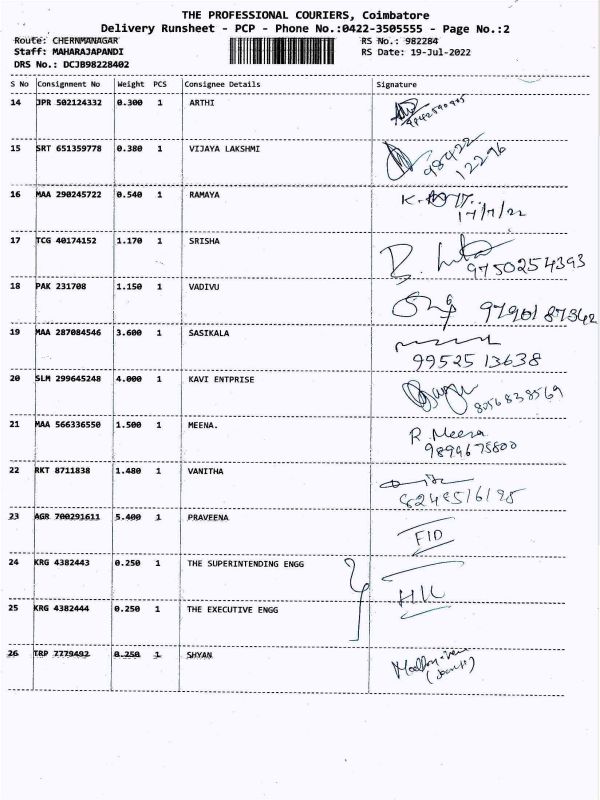 THE PROFESSIONAL COURIERS, Coimbatore
Delivery Runsheet - PCP - Phone No.:0422-3505555 - Page No.:2
Route: CHERNMANAGAR RS No.: 982284
Staff: MAHARAJAPANDI RS Date: 19-Jul-2022
DRS No.: DCJB98228402
S No Consignment No Weight PCS Consignee Details Signature
14 JPR 502124332 0.300 1 ARTHI
15 SRT 651359778 0.380 1 VIJAYA LAKSHMI 98422
12296
16 MAA 290245722 0.540 1 RAMAYA
17/7/22
17 TCG 40174152 1.170 1 SRISHA
9750254393
18 PAK 231708 1.150 1 VADIVU 9790187362
19 MAA 287084546 3.600 1 SASIKALA
99525 13638
20 SLM 299645248 4.000 1 KAVI ENTPRISE
8056838569
21 MAA 566336550 1.500 1 MEENA. R. Meena
9894675800
22 RKT 8711838 1.480 1 VANITHA
8248516198
23 AGR 700291611 5.400 1 PRAVEENA
FID
24 KRG 4382443 0.250 1 THE SUPERINTENDING ENGG
25 KRG 4382444 0.250 1 THE EXECUTIVE ENGG
26 TRP 7779492 0.250 1 SHYAN